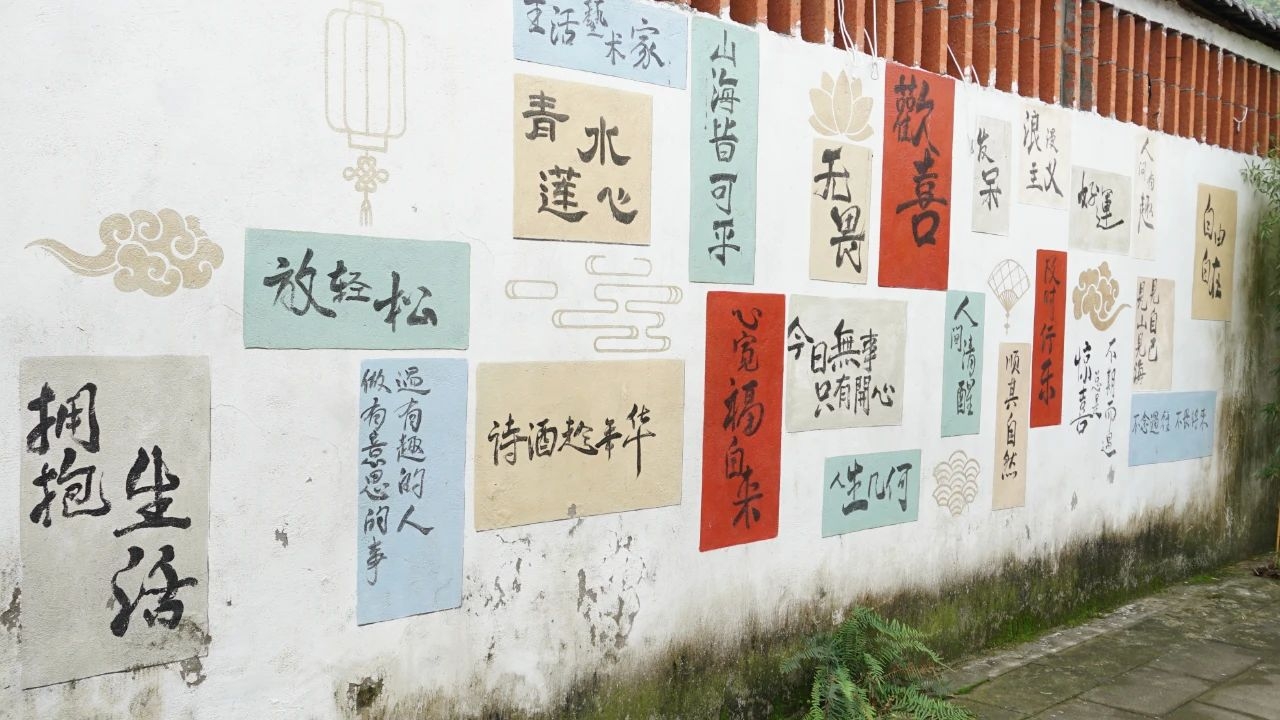 生活藝术家
青蓮
水心
山海皆可平
无畏
歡喜
发呆
浪漫
主义
好運
人间有趣
自由
自在
放轻松
拥抱
生活
遇有趣的人
做有意思的事
诗酒趁年华
心宽福自来
今日無事
只有開心
人生几何
人间清醒
顺其自然
及时行乐
不期而遇
总是
惊喜
见自己
见山见海
不念過往 不畏将来